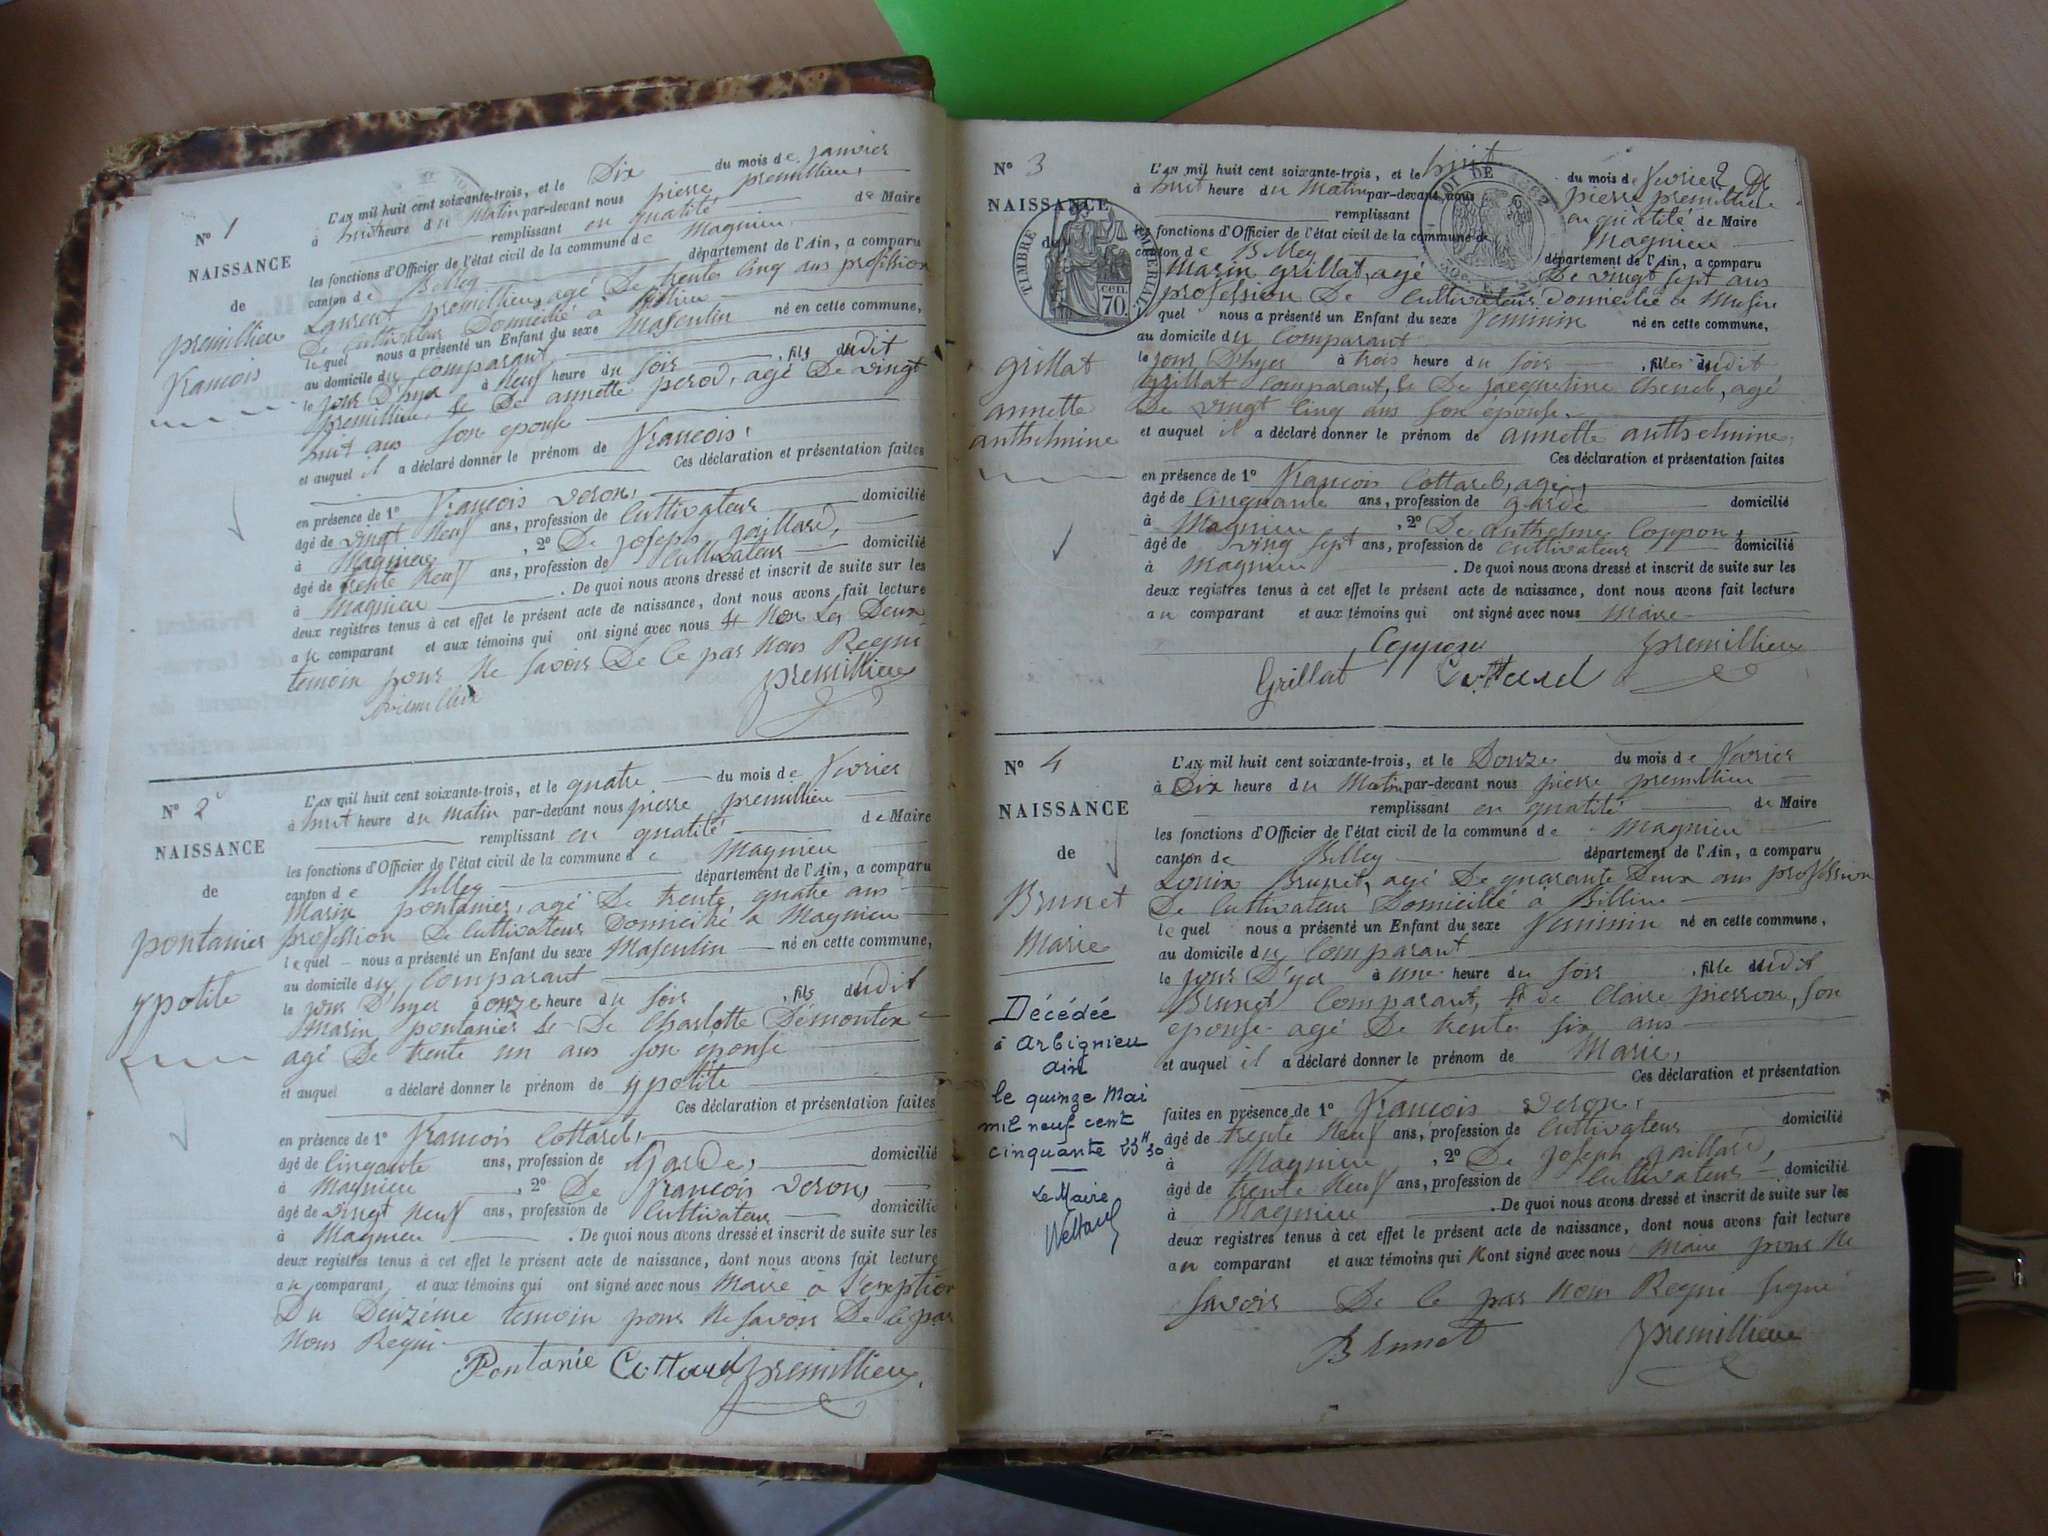 N° 1
NAISSANCE
de
premillieu
francois
L'AN mil huit cent soixante-trois, et le Dix du mois de janvier
à huit heure du Matin par-devant nous pierre premillieu,
remplissant en qualité de Maire
les fonctions d'Officier de l'état civil de la commune de Magnieu
canton de Belley département de l'Ain, a comparu
Laurent premillieu, agé De trente cinq ans profession
De cultivateur Domicilié à
lequel nous a présenté un Enfant du sexe Masculin né en cette commune,
au domicile du comparant
le jour D'hyer à Neuf heure du soir, fils dudit
premillieu & De annette perod, agé De vingt
huit ans son epouse
et auquel il a déclaré donner le prénom de francois.
Ces déclaration et présentation faites
en présence de 1° francois veron,
âgé de vingt Neuf ans, profession de cultivateur domicilié
à Magnieu, 2° De joseph gaillard,
âgé de trente Neuf ans, profession de cultivateur domicilié
à Magnieu. De quoi nous avons dressé et inscrit de suite sur les
deux registres tenus à cet effet le présent acte de naissance, dont nous avons fait lecture
au comparant et aux témoins qui ont signé avec nous & Non Les Deux
temoin pour Ne savoir De ce par Nous Requi
premillieu premillieu
N° 2
NAISSANCE
de
pontanier
ypolite
L'AN mil huit cent soixante-trois, et le quatre du mois de fevrier
à huit heure du Matin par-devant nous pierre premillieu
remplissant en qualité de Maire
les fonctions d'Officier de l'état civil de la commune de Magnieu
canton de Belley département de l'Ain, a comparu
Marin pontanier, agé De trente quatre ans
profession De cultivateur Domicilié a Magnieu
lequel nous a présenté un Enfant du sexe Masculin né en cette commune,
au domicile du comparant
le jour D'hyer à onze heure du soir, fils dudit
Marin pontanier & De Charlotte Démontex
agé De trente un ans son epouse
et auquel a déclaré donner le prénom de ypolite
Ces déclaration et présentation faites
en présence de 1° francois Cottard,
âgé de cinqante ans, profession de Garde, domicilié
à Magnieu, 2° De francois veron,
âgé de vingt Neuf ans, profession de cultivateur domicilié
à Magnieu. De quoi nous avons dressé et inscrit de suite sur les
deux registres tenus à cet effet le présent acte de naissance, dont nous avons fait lecture
au comparant et aux témoins qui ont signé avec nous Maire à l'exeption
Du Deuxième temoin pour Ne savoir De ce par
Nous Requi
Pontanie Cottard premillieu
N° 3
NAISSANCE
de
TIMBRE IMPERIAL
70 cen.
grillat
annette
anthelmine
L'AN mil huit cent soixante-trois, et le huit du mois de fevrier
à huit heure du Matin par-devant nous pierre premillieu
remplissant en qualité de Maire
les fonctions d'Officier de l'état civil de la commune de Magnieu
canton de Belley département de l'Ain, a comparu
Marin grillat, agé De vingt sept ans
profession De cultivateur Domicilié a Musin
lequel nous a présenté un Enfant du sexe feminin né en cette commune,
au domicile du comparant
le jour D'hyer à trois heure du soir, fille dudit
grillat comparant, & De jacqueline, agé
De vingt cinq ans son épouse
et auquel il a déclaré donner le prénom de annette anthelmine,
Ces déclaration et présentation faites
en présence de 1° francois Cottard, agé,
âgé de cinquante ans, profession de garde domicilié
à Magnieu, 2° De anthelme Coppon,
âgé de vinq sept ans, profession de cultivateur domicilié
à Magnieu. De quoi nous avons dressé et inscrit de suite sur les
deux registres tenus à cet effet le présent acte de naissance, dont nous avons fait lecture
au comparant et aux témoins qui ont signé avec nous Maire
Coppon premillieu
Grillat Cottard
N° 4
NAISSANCE
de
Brunet
Marie
Décédée
à Arbignieu
ain
le quinze Mai
mil neuf cent
cinquante 23H30
Le Maire
L'AN mil huit cent soixante-trois, et le Douze du mois de fevrier
à Dix heure du Matin par-devant nous pierre premillieu
remplissant en qualité de Maire
les fonctions d'Officier de l'état civil de la commune de Magnieu
canton de Belley département de l'Ain, a comparu
Louis Brunet, agé De quarante Deux ans profession
De cultivateur Domicillé à Billieu
lequel nous a présenté un Enfant du sexe feminin né en cette commune,
au domicile du comparant
le jour D'yer à une heure du soir, fille dudit
Brunet comparant, & de Claire pierron, son
epouse agé De trente six ans
et auquel il a déclaré donner le prénom de Marie,
Ces déclaration et présentation
faites en présence de 1° francois veron,
âgé de trente Neuf ans, profession de cultivateur domicilié
à Magnieu, 2° De joseph gaillard,
âgé de trente Neuf ans, profession de cultivateur domicilié
à Magnieu. De quoi nous avons dressé et inscrit de suite sur les
deux registres tenus à cet effet le présent acte de naissance, dont nous avons fait lecture
au comparant et aux témoins qui Nont signé avec nous Maire pour Ne
savoir De ce par Nous Requi signé
Brunet premillieu